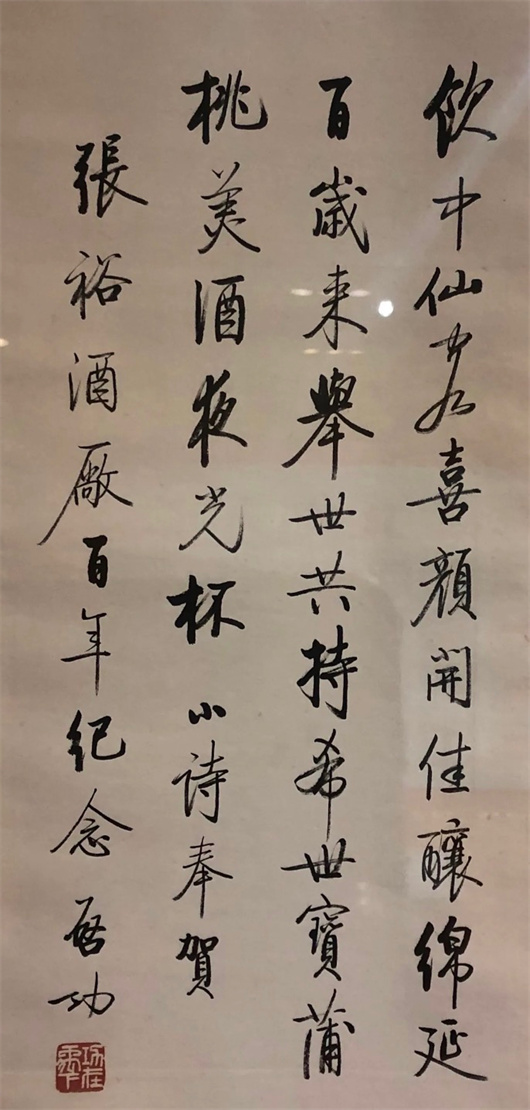 飲中仙客喜顏開佳釀綿延
百歲来舉世共持希世寶蒲
桃美酒夜光杯 小詩奉賀
張裕酒廠百年紀念 启功